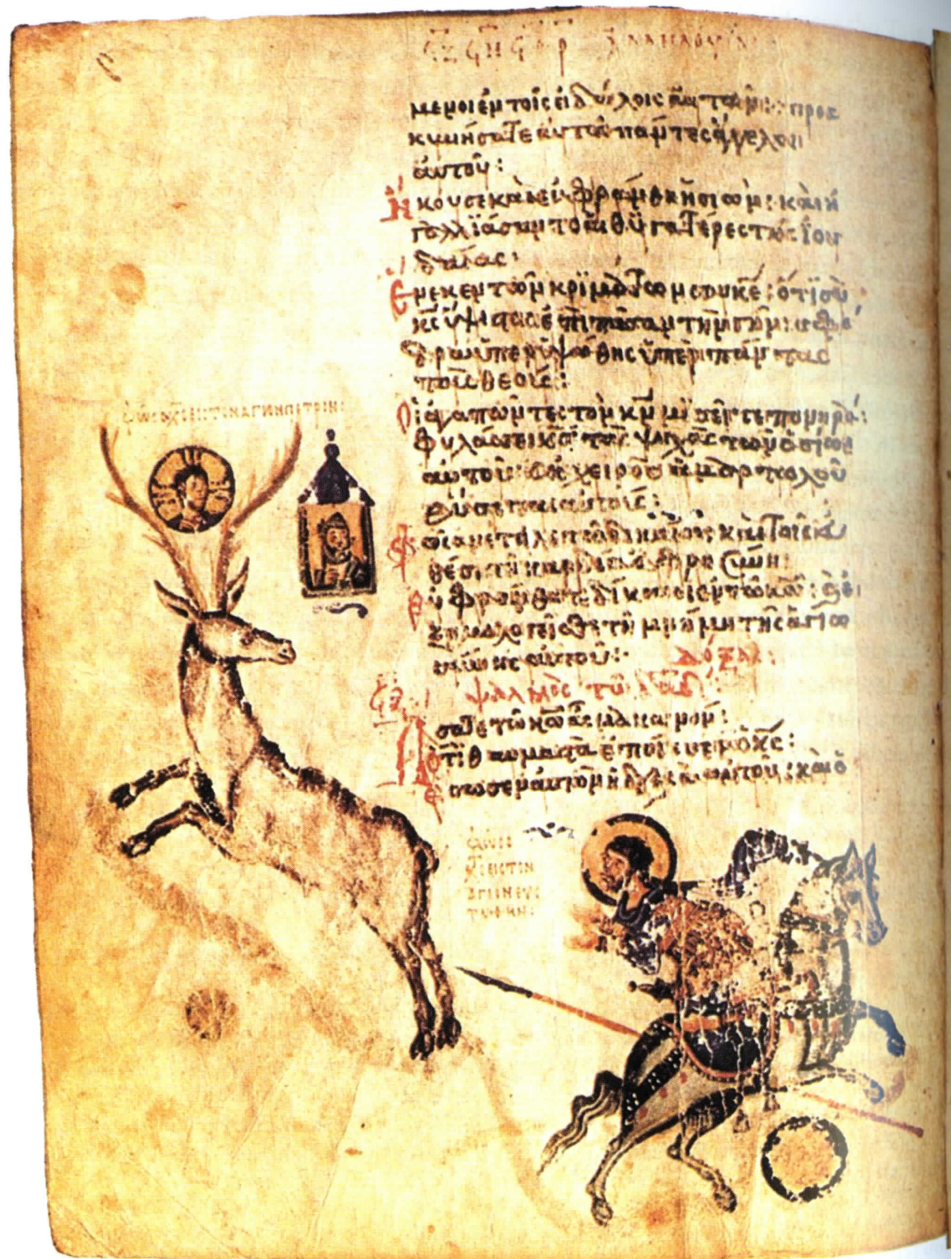 μενοι ἐν τοῖς εἰδώλοις αὐτῶν: προσ
κυνήσατε αὐτῶ πάντες ἄγγελοι
αὐτοῦ:
Ἤκουσε καὶ εὐφράνθη ἡ σιών: καὶ ἠ
γαλλιάσαντο αἱ θυγατέρες τῆς ἰου
δαίας:
Ἕνεκεν τῶν κριμάτων σου κε: ὅτι σὺ
κς ὕψιστος ἐπὶ πᾶσαν τὴν γῆν: σφό
δρα ὑπερυψώθης ὑπὲρ πάντας
τοὺς θεούς:
Οἱ ἀγαπῶντες τὸν κν μισεῖτε πονηρά:
φυλάσσει κς τὰς ψυχὰς τῶν ὁσίων
αὐτοῦ: ἐκ χειρὸς ἁμαρτωλοῦ
ῥύσεται αὐτούς:
Φῶς ἀνέτειλε τῶ δικαίω: καὶ τοῖς εὐ
θέσι τῆ καρδία εὐφροσύνη:
Εὐφράνθητε δίκαιοι ἐν τῶ κω: ἐξο
μολογεῖσθε τῆ μνήμη τῆς ἁγιω
σύνης αὐτοῦ: ΔΟΞΑ:
ϟζ ψαλμὸς τῶ δαδ:
Ἄσατε τῶ κω ἆσμα καινόν:
ὅτι θαυμαστὰ ἐποίησεν ὁ κς:
Ἔσωσεν αὐτὸν ἡ δεξιὰ αὐτοῦ: καὶ ὁ